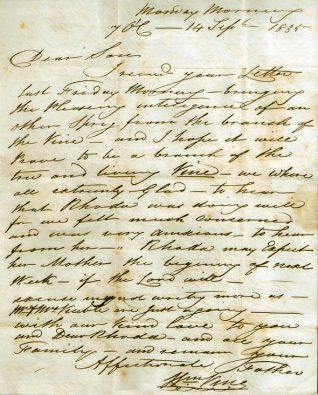 Monday Morning
7 oC — 14 Sept 1835
Dear Son
I recd your Letter
last Friday Morning – bringing
the Pleasing intelegence of an
other Sprig from the branch of
the Vine – and I hope it will
Prove to be a branch of the
true and living Vine – we where
all extremly Glad – to hear
that Rhoda was doing well
for we felt much concerned
and ware very Anxious to hear
from her – Rhoda may Expect
her Mother the begining of next
Week – if the Lord will –
excuse my not writing more as –
Mr & Mrs are just agoing –
with our kind love to you
and Dear Rhoda – and all your
Family – and remain your
Affectionate Father
Wm Vine